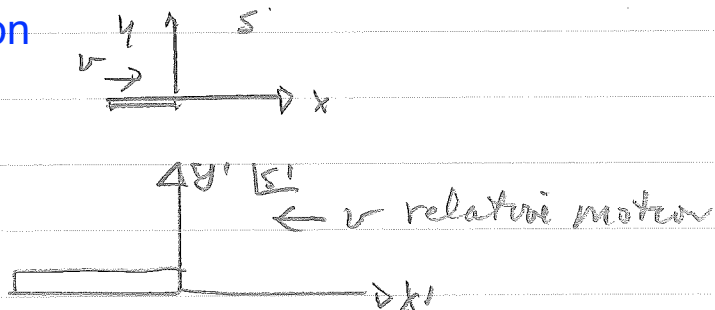 on
y S
v →
x
y' S'
← v relative motion
x'